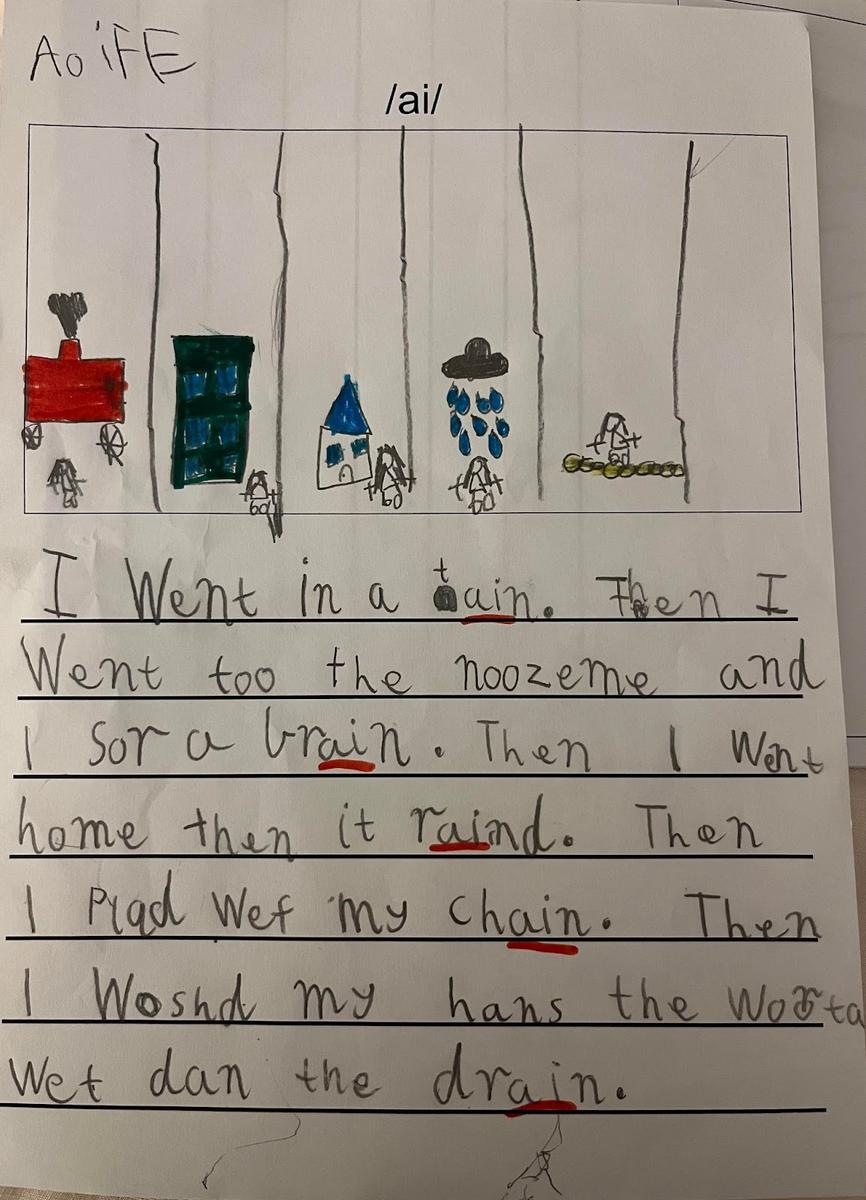 AoiFE
/ai/
I Went in a tain. Then I
Went too the noozeme and
I sor a brain. Then I Went
home then it raind. Then
I Plad Wef my chain. Then
I Woshd my hans the Worta
Wet dan the drain.